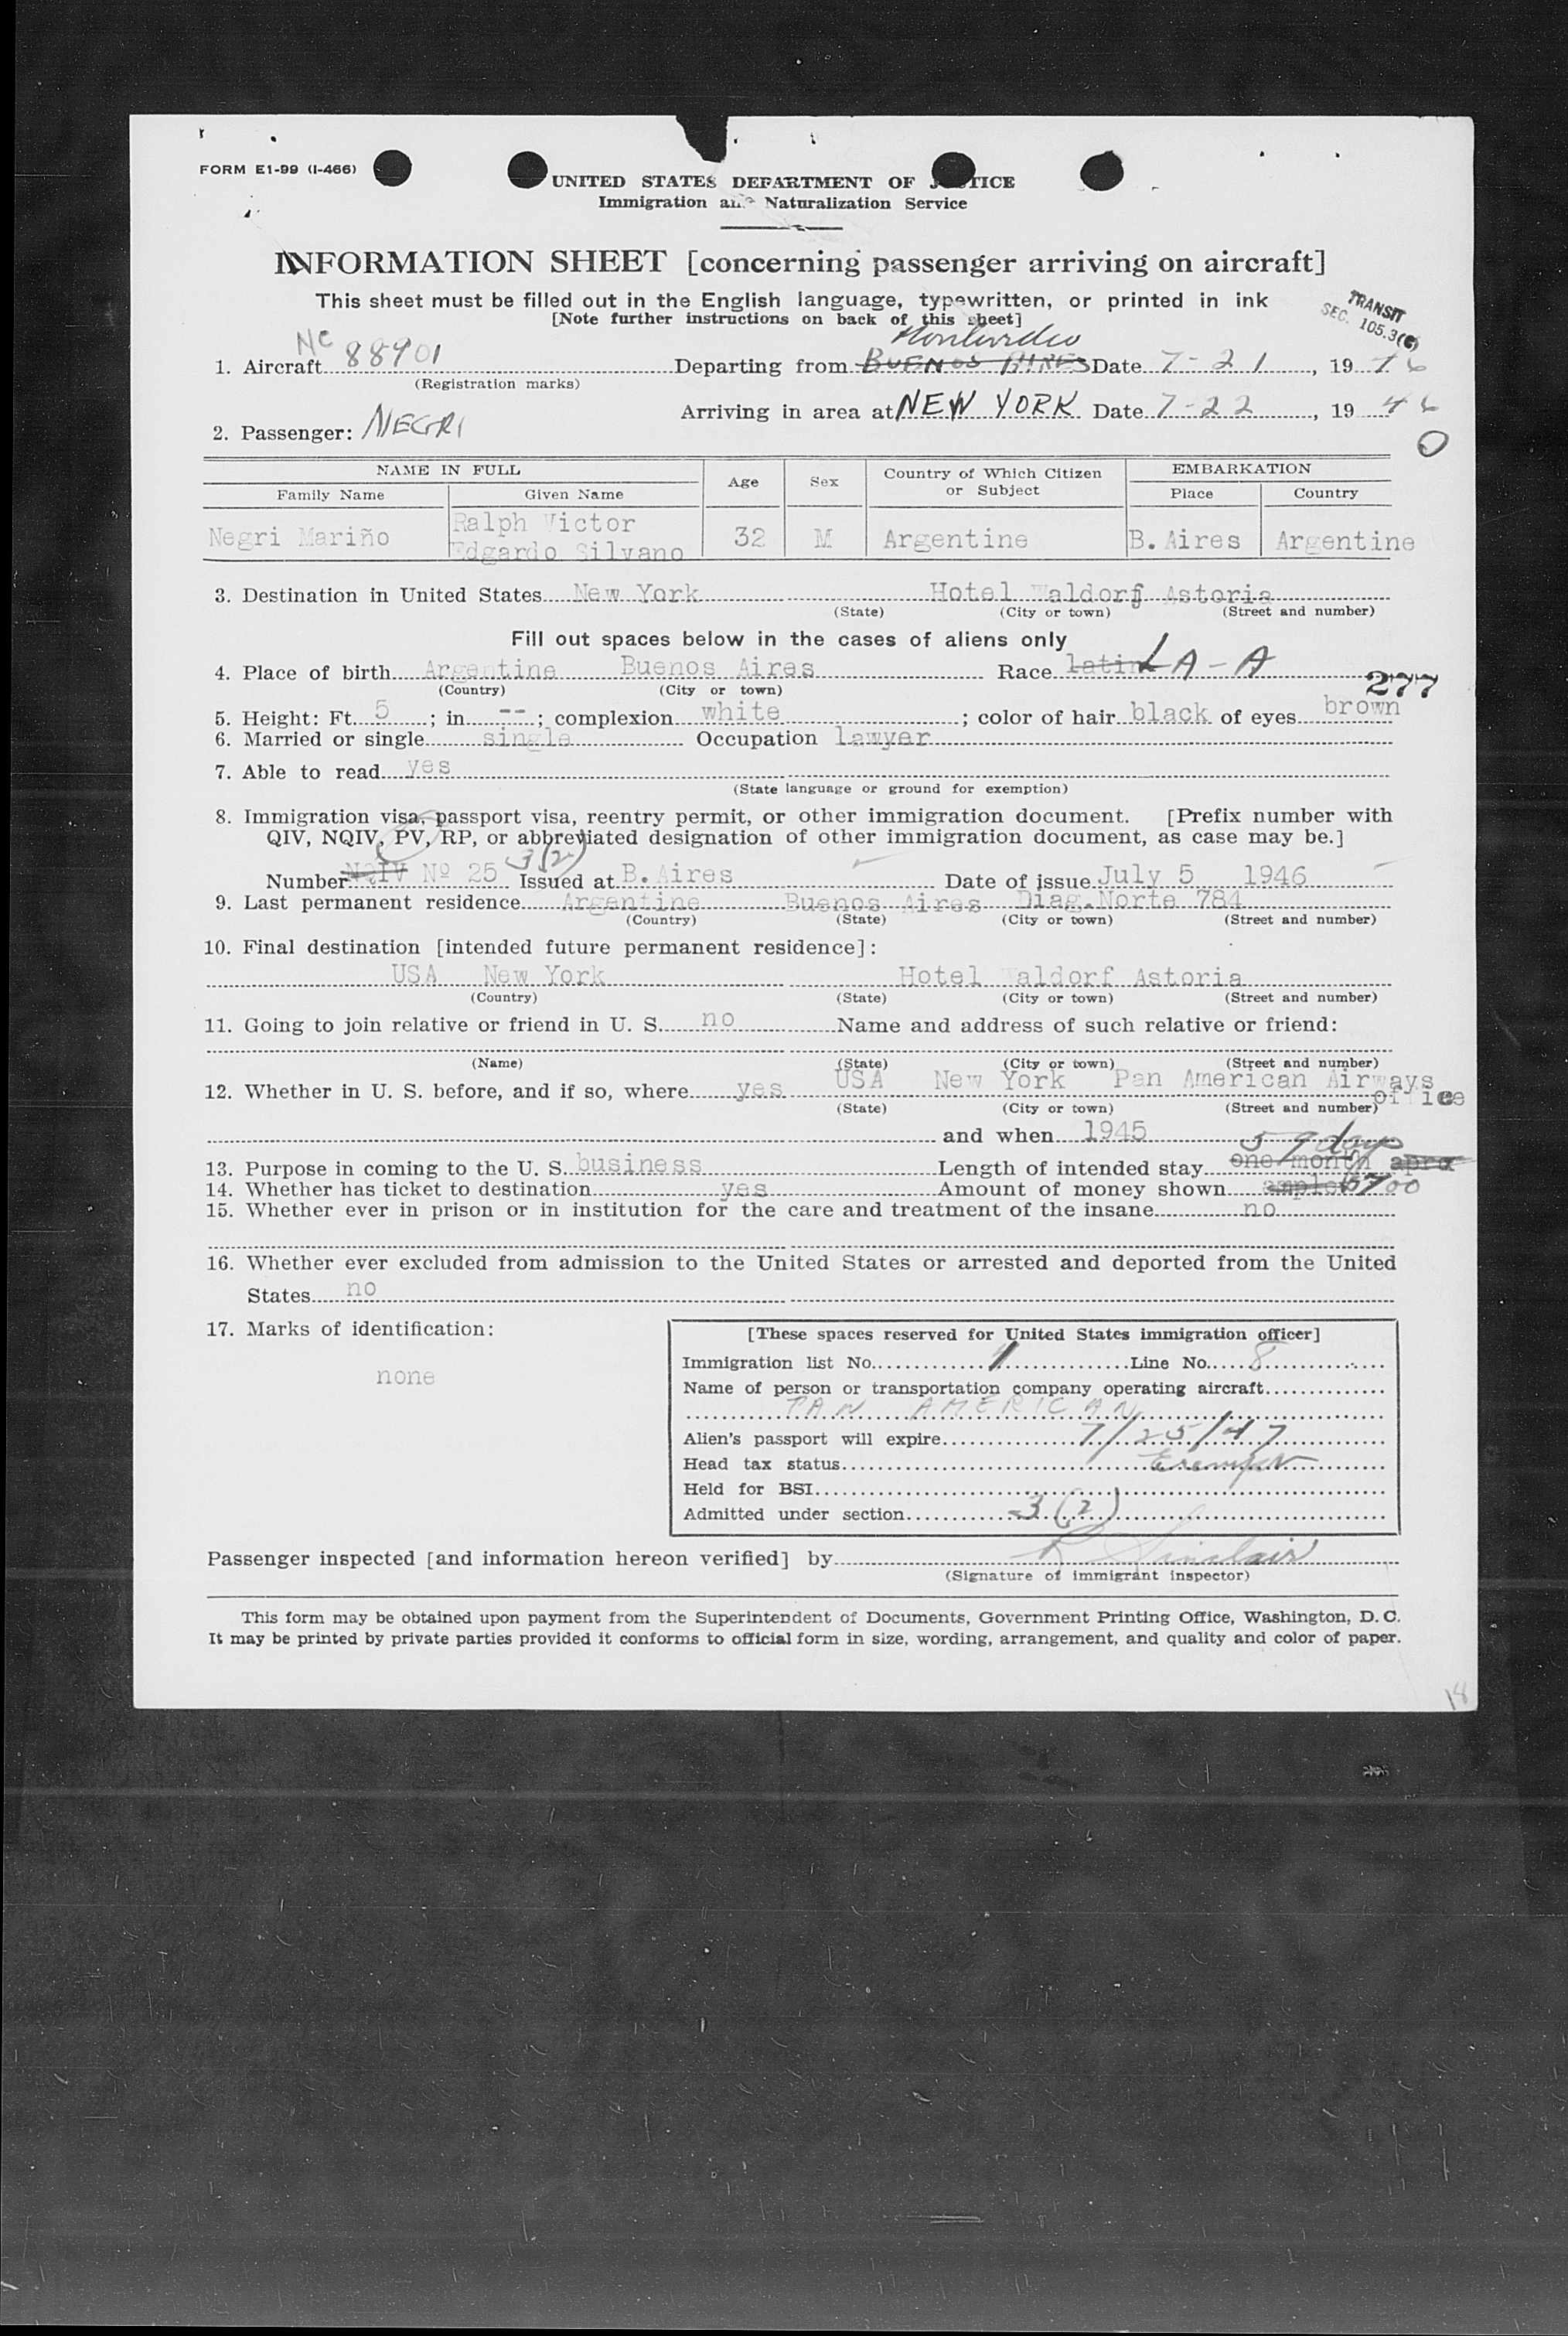 FORM E1-99 (I-466)
UNITED STATES DEPARTMENT OF JUSTICE
Immigration and Naturalization Service
INFORMATION SHEET [concerning passenger arriving on aircraft]
This sheet must be filled out in the English language, typewritten, or printed in ink
[Note further instructions on back of this sheet]
TRANSIT
SEC. 105.3(C)
Montevideo
1. Aircraft NC 88901 Departing from BUENOS AIRES Date 7-21, 1946
(Registration marks)
Arriving in area at NEW YORK Date 7-22, 1946
2. Passenger: NEGRI
0
NAME IN FULL Age Sex Country of Which Citizen or Subject EMBARKATION
Family Name Given Name Place Country
Negri Mariño Ralph Victor Edgardo Silvano 32 M Argentine B.Aires Argentine
3. Destination in United States New York Hotel Waldorf Astoria
(State) (City or town) (Street and number)
Fill out spaces below in the cases of aliens only
4. Place of birth Argentine Buenos Aires Race latin LA-A
(Country) (City or town)
277
5. Height: Ft. 5; in. --; complexion white; color of hair black of eyes brown
6. Married or single single Occupation lawyer
7. Able to read yes
(State language or ground for exemption)
8. Immigration visa, passport visa, reentry permit, or other immigration document. [Prefix number with
QIV, NQIV, PV, RP, or abbreviated designation of other immigration document, as case may be.]
3(2)
Number NQIV Nº 25 Issued at B.Aires Date of issue July 5 1946
9. Last permanent residence Argentine Buenos Aires Diag.Norte 784
(Country) (State) (City or town) (Street and number)
10. Final destination [intended future permanent residence]:
USA New York Hotel Waldorf Astoria
(Country) (State) (City or town) (Street and number)
11. Going to join relative or friend in U. S. no Name and address of such relative or friend:
(Name) (State) (City or town) (Street and number)
12. Whether in U. S. before, and if so, where yes USA New York Pan American Airways office
(State) (City or town) (Street and number)
and when 1945
59 days
13. Purpose in coming to the U. S. business Length of intended stay one month aprox
14. Whether has ticket to destination yes Amount of money shown ample 5700
15. Whether ever in prison or in institution for the care and treatment of the insane no
16. Whether ever excluded from admission to the United States or arrested and deported from the United
States no
17. Marks of identification:
none
[These spaces reserved for United States immigration officer]
Immigration list No. 1 Line No. 8
Name of person or transportation company operating aircraft
PAN AMERICAN
Alien's passport will expire 7/25/47
Head tax status Exempt
Held for BSI
Admitted under section 3(2)
Passenger inspected [and information hereon verified] by R Sinclair
(Signature of immigrant inspector)
This form may be obtained upon payment from the Superintendent of Documents, Government Printing Office, Washington, D. C.
It may be printed by private parties provided it conforms to official form in size, wording, arrangement, and quality and color of paper.
18